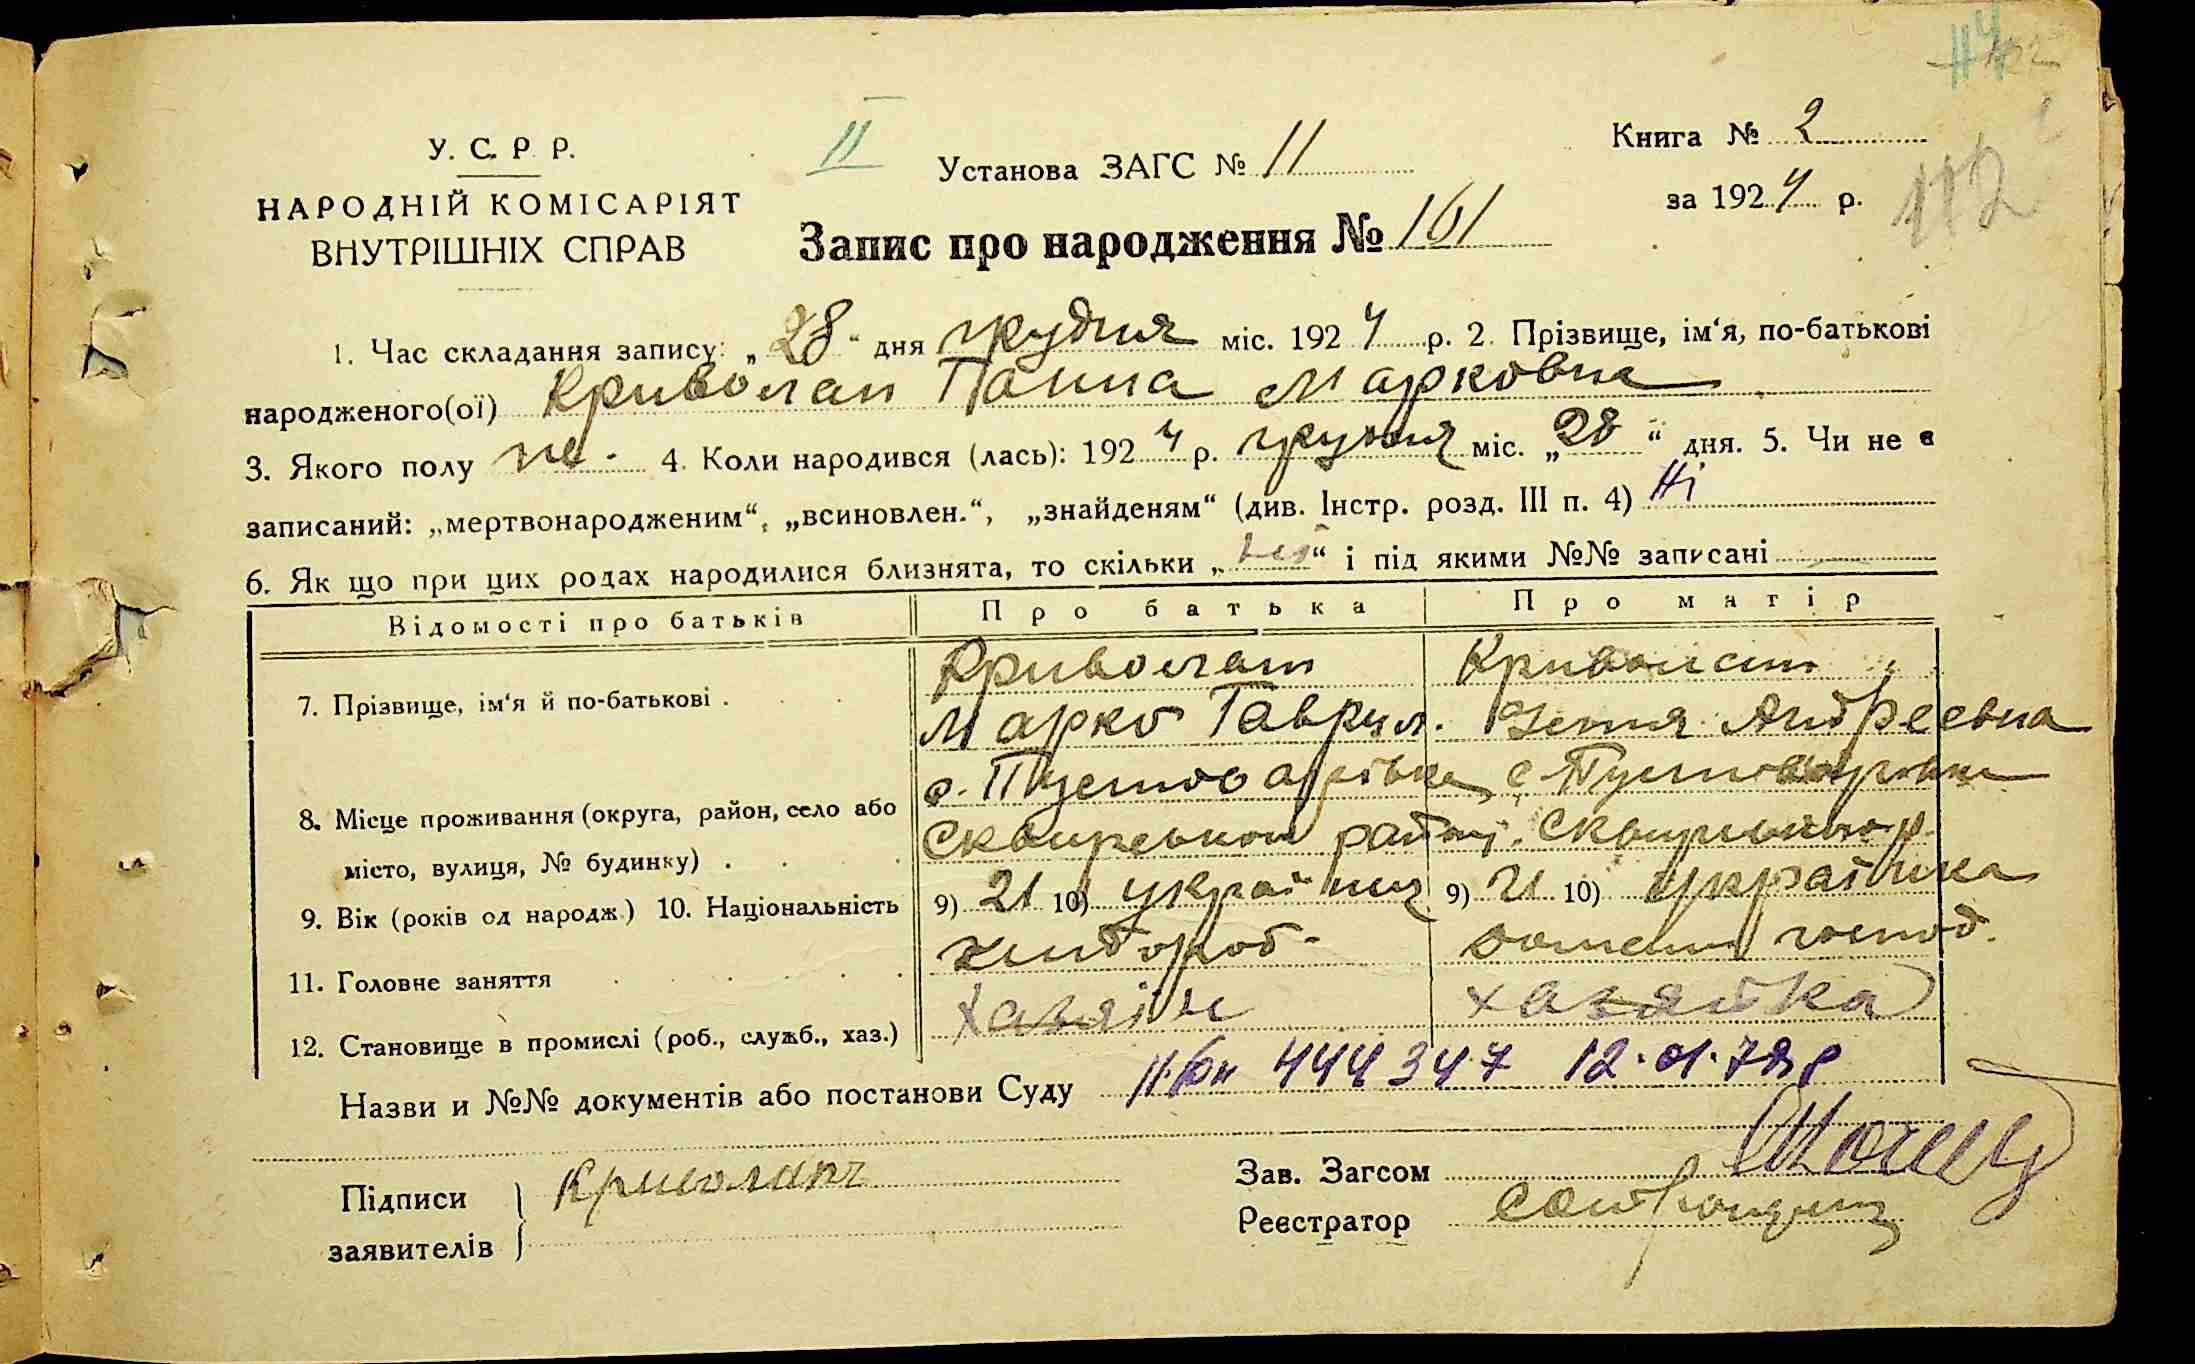 114
112
У. С. Р. Р.
НАРОДНІЙ КОМІСАРІЯТ
ВНУТРІШНІХ СПРАВ
II
Установа ЗАГС № 11
Книга № 2
за 1924 р.
Запис про народження № 161
1. Час складання запису: „28" дня грудня міс. 1924 р. 2. Прізвище, ім'я, по-батькові
народженого(ої) Криволап Панна Марковна
3. Якого полу же. 4. Коли народився (лась): 1924 р. грудня міс. „28“ дня. 5. Чи не є
записаний: „мертвонародженим“, „всиновлен.“, „знайденям“ (див. Інстр. розд. III п. 4) Ні
6. Як що при цих родах народилися близнята, то скільки „ “ і під якими №№ записані
Відомості про батьків Про батька Про матір
7. Прізвище, ім'я й по-батькові . Криволап
Марко Гаврил. Криволап
Андреевна
8. Місце проживання (округа, район, село або
місто, вулиця, № будинку) . с. Пустоварівка
Сквирського району с. Пустоварівка
Сквирського р.
9. Вік (років од народж.) 10. Національність 9) 21 10) українец 9) 21 10) українка
11. Головне заняття хлібороб- домашн господ.
12. Становище в промислі (роб., служб., хаз.) хазяін хазяйка
Назви и №№ документів або постанови Суду 444347 12.01.79р
Підписи
заявителів Криволап
Зав. Загсом
Реєстратор